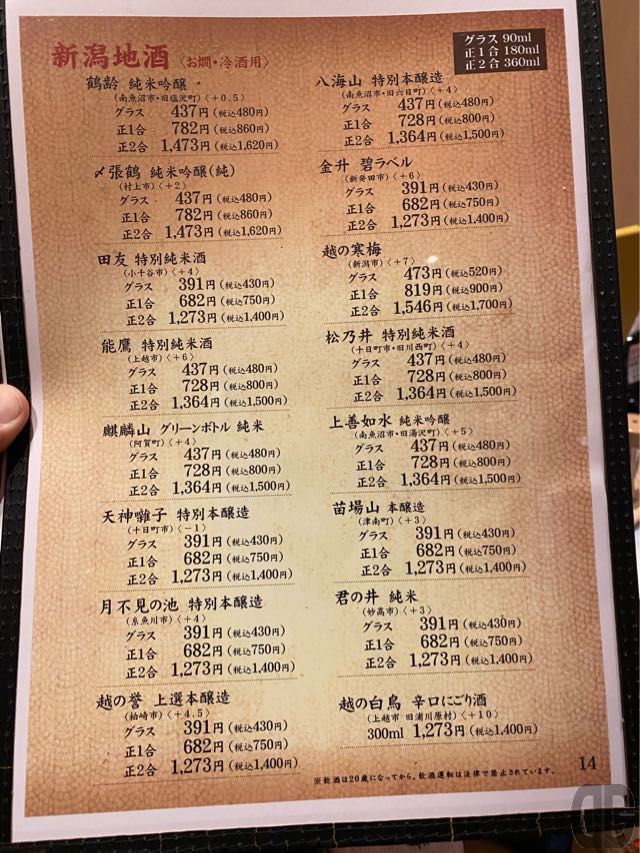 新潟地酒〈お燗・冷酒用〉
グラス 90ml
正1合 180ml
正2合 360ml
鶴齢 純米吟醸
(南魚沼市・旧塩沢町)〈+0.5〉
グラス 437円(税込480円)
正1合 782円(税込860円)
正2合 1,473円(税込1,620円)
〆張鶴 純米吟醸(純)
(村上市)〈+2〉
グラス 437円(税込480円)
正1合 782円(税込860円)
正2合 1,473円(税込1,620円)
田友 特別純米酒
(小千谷市)〈+4〉
グラス 391円(税込430円)
正1合 682円(税込750円)
正2合 1,273円(税込1,400円)
能鷹 特別純米酒
(上越市)〈+6〉
グラス 437円(税込480円)
正1合 728円(税込800円)
正2合 1,364円(税込1,500円)
麒麟山 グリーンボトル 純米
(阿賀町)〈+4〉
グラス 437円(税込480円)
正1合 728円(税込800円)
正2合 1,364円(税込1,500円)
天神囃子 特別本醸造
(十日町市)〈-1〉
グラス 391円(税込430円)
正1合 682円(税込750円)
正2合 1,273円(税込1,400円)
月不見の池 特別本醸造
(糸魚川市)〈+4〉
グラス 391円(税込430円)
正1合 682円(税込750円)
正2合 1,273円(税込1,400円)
越の誉 上選本醸造
(柏崎市)〈+4.5〉
グラス 391円(税込430円)
正1合 682円(税込750円)
正2合 1,273円(税込1,400円)
八海山 特別本醸造
(南魚沼市・旧六日町)〈+4〉
グラス 437円(税込480円)
正1合 728円(税込800円)
正2合 1,364円(税込1,500円)
金升 碧ラベル
(新発田市)〈+6〉
グラス 391円(税込430円)
正1合 682円(税込750円)
正2合 1,273円(税込1,400円)
越の寒梅
(新潟市)〈+7〉
グラス 473円(税込520円)
正1合 819円(税込900円)
正2合 1,546円(税込1,700円)
松乃井 特別純米酒
(十日町市・旧川西町)〈+4〉
グラス 437円(税込480円)
正1合 728円(税込800円)
正2合 1,364円(税込1,500円)
上善如水 純米吟醸
(南魚沼市・旧湯沢町)〈+5〉
グラス 437円(税込480円)
正1合 728円(税込800円)
正2合 1,364円(税込1,500円)
苗場山 本醸造
(津南町)〈+3〉
グラス 391円(税込430円)
正1合 682円(税込750円)
正2合 1,273円(税込1,400円)
君の井 純米
(妙高市)〈+3〉
グラス 391円(税込430円)
正1合 682円(税込750円)
正2合 1,273円(税込1,400円)
越の白鳥 辛口にごり酒
(上越市 旧浦川原村)〈+10〉
300ml 1,273円(税込1,400円)
※飲酒は20歳になってから。飲酒運転は法律で禁止されています。
14